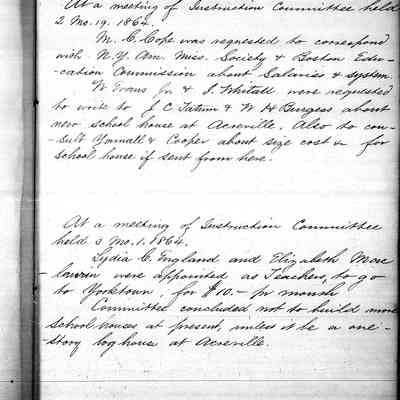 At a meeting of Instruction Committee held
2 Mo. 19. 1864.
M. C. Cope was requested to correspond
with N. Y. Am. Miss. Society & Boston Edu-
-cation Commission about Salaries & system.
W Evans Jr & J. Whitall were requested
to write to J C Tatum & W H Burgess about
new school house at Acreville. Also to con-
-sult Yarnall & Cooper about size cost &c for
School house if sent from here.
At a meeting of Instruction Committee
held 3 Mo. 1. 1864.
Lydia C. England and Elizabeth More
lawin were appointed as Teachers, to go
to Yorktown, for $10.- pr month
Committee concluded not to build more
School houses at present, unless it be a one-
-story log house at Acreville.